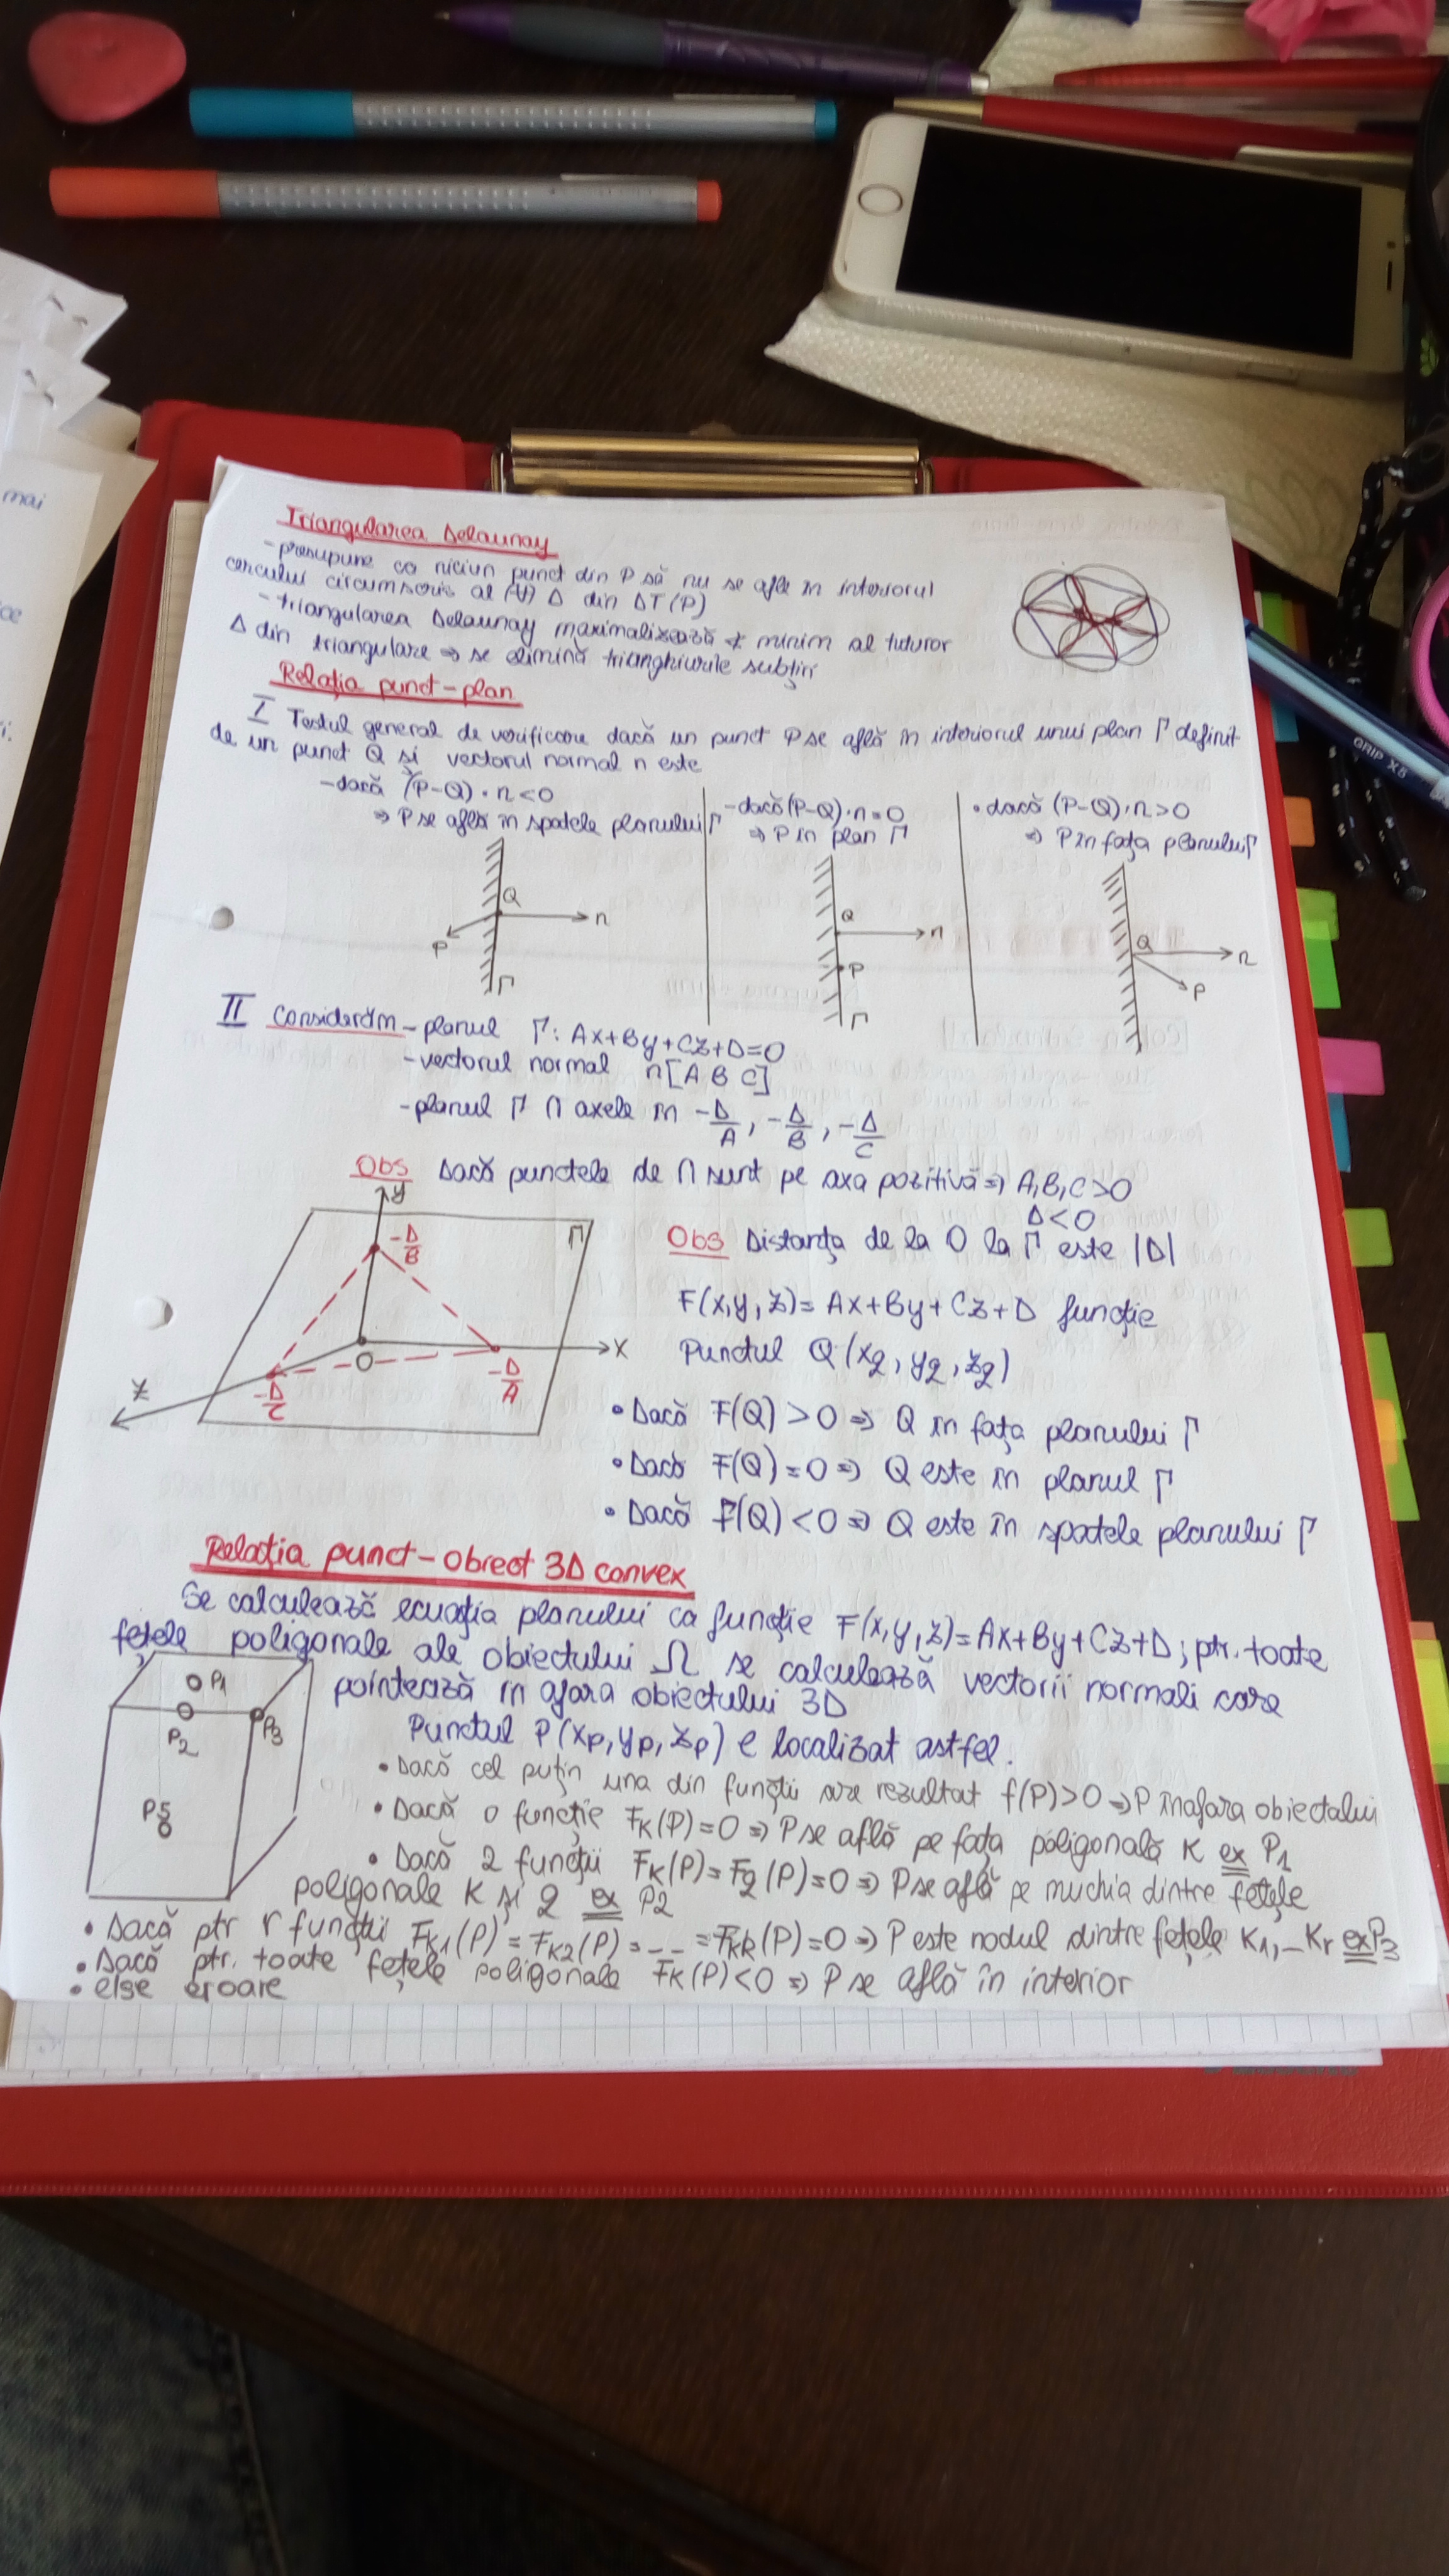 Triangularea Delaunay
- presupune ca niciun punct din P să nu se afle în interiorul
cercului circumscris al (∀) Δ din ΔT(P)
- triangularea Delaunay maximalizează ∢ minim al tuturor
Δ din triangulare ⇒ se elimină triunghiurile subțiri
Relația punct-plan
I Testul general de verificare dacă un punct P se află în interiorul unui plan Γ definit
de un punct Q și vectorul normal n este
- dacă (P-Q)·n<0
⇒ P se află în spatele planului Γ
- dacă (P-Q)·n=0
⇒ P în plan Γ
• dacă (P-Q)·n>0
⇒ P în fața planului Γ
Q
n
P
Γ
Q
n
P
Γ
Q
n
P
II Considerăm - planul Γ: Ax+By+Cz+D=0
- vectorul normal n[A B C]
- planul Γ ∩ axele în -D/A, -D/B, -D/C
Obs Dacă punctele de ∩ sunt pe axa pozitivă ⇒ A,B,C>0
D<0
y
-D/B
Γ
O
x
-D/A
z
-D/C
Obs Distanța de la O la Γ este |D|
F(x,y,z)= Ax+By+Cz+D funcție
Punctul Q(xq, yq, zq)
• Dacă F(Q)>0 ⇒ Q în fața planului Γ
• Dacă F(Q)=0 ⇒ Q este în planul Γ
• Dacă F(Q)<0 ⇒ Q este în spatele planului Γ
Relația punct-obiect 3D convex
Se calculează ecuația planului ca funcție F(x,y,z)=Ax+By+Cz+D; ptr. toate
fețele poligonale ale obiectului Ω se calculează vectorii normali care
pointează în afara obiectului 3D
Punctul P(xp, yp, zp) e localizat astfel.
P1
P2
P3
P5
• Dacă cel puțin una din funcții are rezultat f(P)>0 ⇒ P înafara obiectului
• Dacă o funcție Fk(P)=0 ⇒ P se află pe fața poligonală K ex P1
• Dacă 2 funcții Fk(P)=Fq(P)=0 ⇒ P se află pe muchia dintre fețele
poligonale K și q ex P2
• Dacă ptr r funcții Fk1(P)=Fk2(P)=__=FkR(P)=0 ⇒ P este nodul dintre fețele K1,_Kr ex P3
• Dacă ptr. toate fețele poligonale Fk(P)<0 ⇒ P se află în interior
• else eroare
mai
GRIP X5